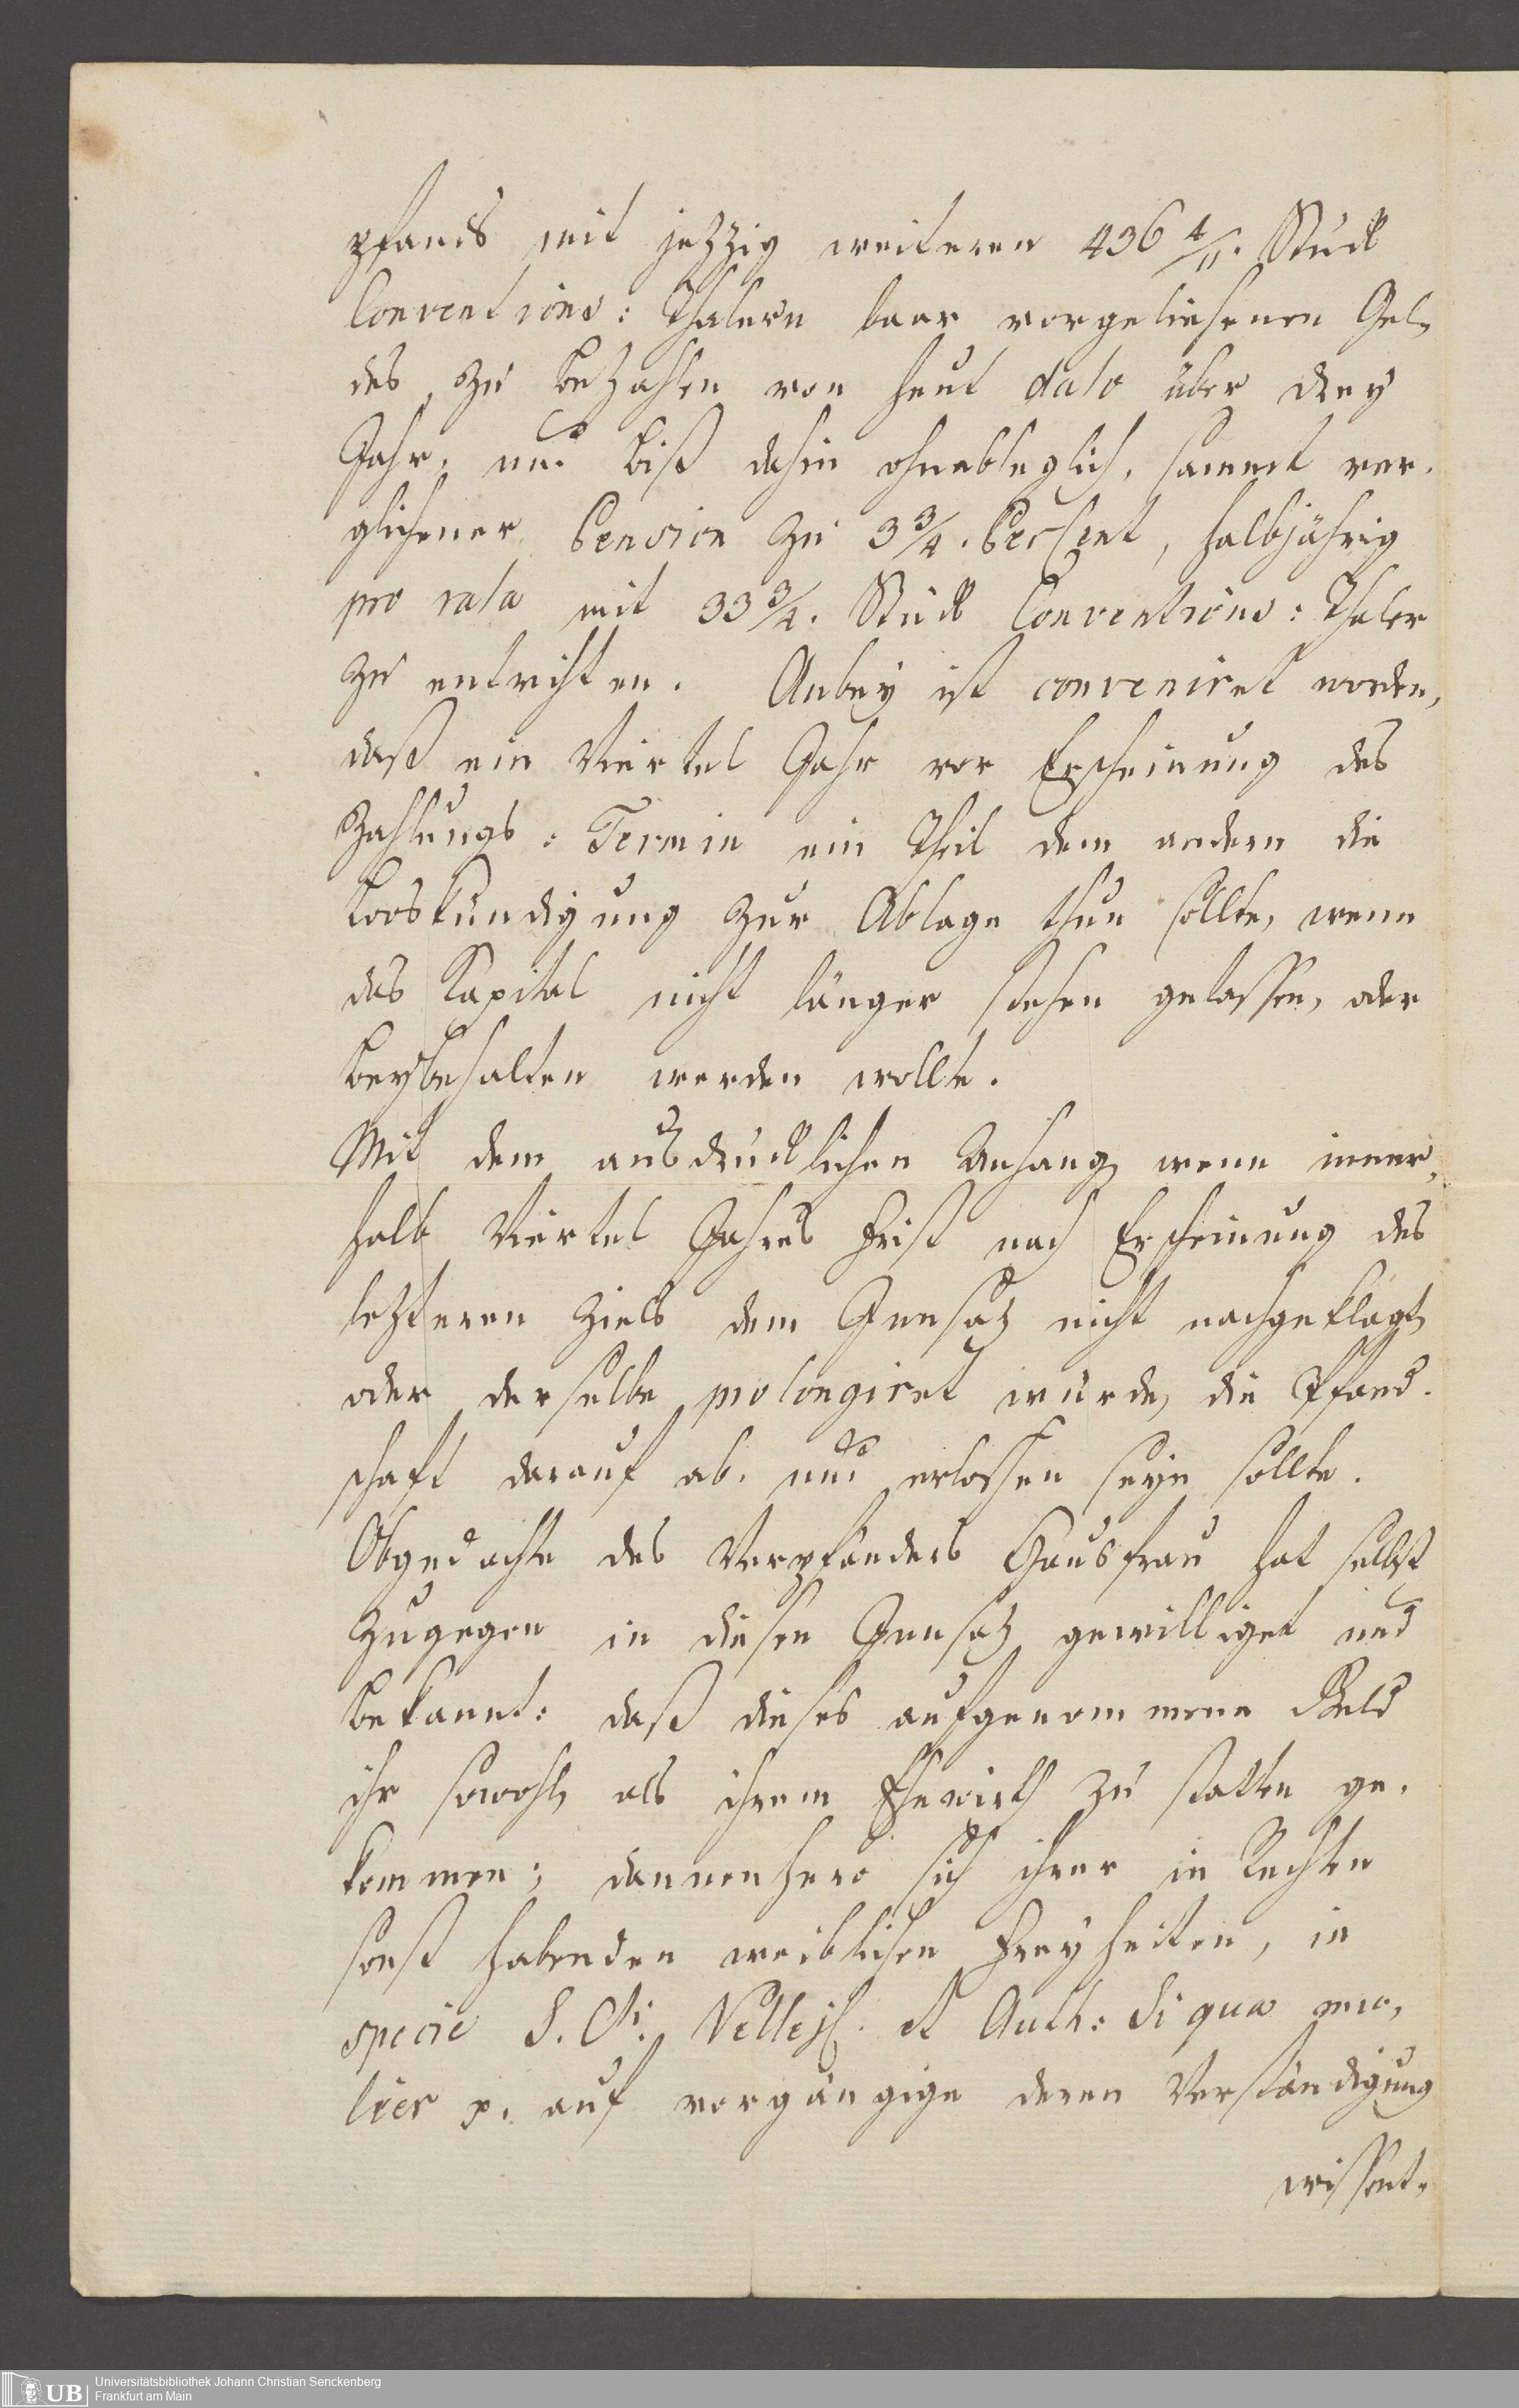 pfands mit jezzig weiteren 436 4/11. Stück
Conventions: Thalern baar vorgeliehenen Gel,
des, zu bezahlen von heut dato über drey
Jahr, und biß dahin ohnableglich, sammt ver,
glichener Pension zu 3 3/4. PerCent, halbjährig
pro rata mit 33 3/4. Stück Conventions: Thaler
zu entrichten. Anbey ist conveniret worden,
daß ein Viertel Jahr vor Erscheinung des
Zahlungs: Termin ein Theil dem andern die
Looskündigung zur Ablage thun sollte, wenn
das Kapital nicht länger stehen gelassen, oder
beybehalten werden wollte.
Mit dem ausdrücklichen Anhang, wenn inner,
halb Viertel Jahres Frist nach Erscheinung des
lezteren Ziels dem Innsaz nicht nachgeklagt,
oder derselbe prolongiret würde, die Pfand,
schaft darauf ab, und erloschen seyn sollte.
Obgedachte des Verpfänders Hausfrau hat selbst
zugegen in diesen Innsaz gewilliget und
bekannt: daß dieses aufgenommene Geld
ihr sowohl, als ihrem Ehewirth zu statten ge,
kommen; dannenhero sich ihrer in Rechten
sonst habenden weiblichen Freyheiten, in
specie S. Cti. Vellej. et Auth: Si qua mu,
lier p. auf vorgängige deren Verständigung
wissent,
Universitätsbibliothek Johann Christian Senckenberg
Frankfurt am Main
UB